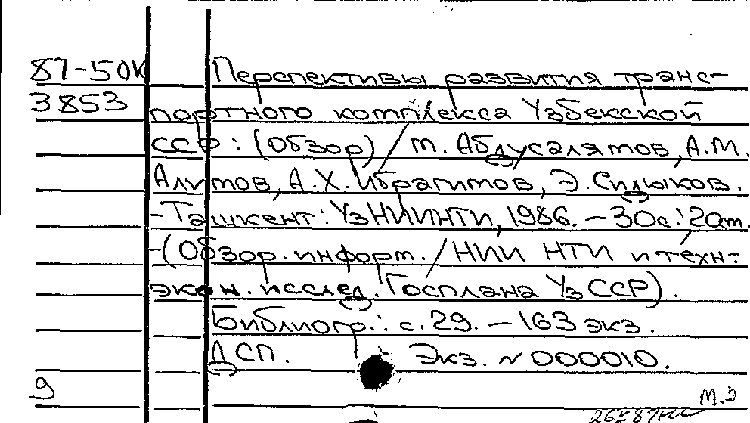 87-50К Перспективы развития транс-
3853 портного комплекса Узбекской
ССР : (Обзор) / т. Абдусалямов, А.М.
Алимов, А.Х. Ибрагимов, Э. Сидыков.
-Ташкент : УзНИИНТИ, 1986. – 30с.: 2ат.
-(Обзор. информ. / НИИ НТИ и техн-
экон. исслед. Госплана УзССР).
Библиогр.: с.29. – 163 экз.
ДСП. Экз. N 000010.
9 М.Э